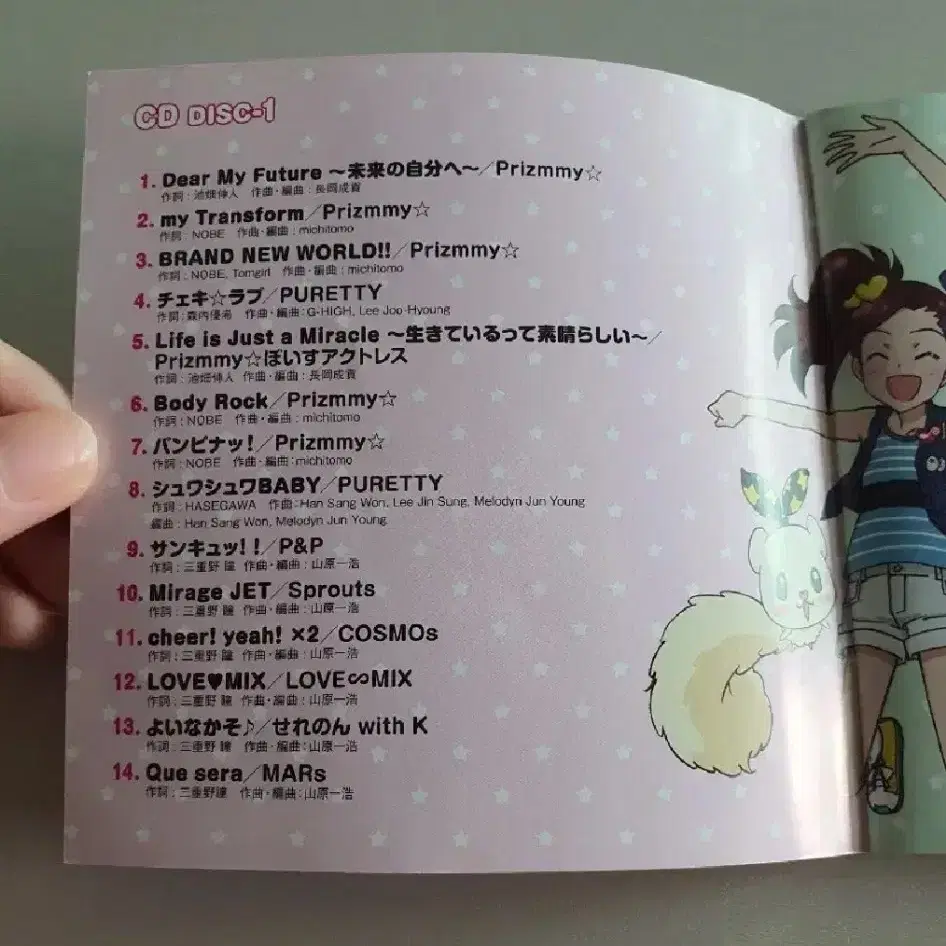 CD DISC-1
1. Dear My Future 〜未来の自分へ〜/Prizmmy☆
作詞：池畑伸人 作曲・編曲：長岡成貢
2. my Transform/Prizmmy☆
作詞：NOBE 作曲・編曲：michitomo
3. BRAND NEW WORLD!!/Prizmmy☆
作詞：NOBE, Tomgirl 作曲・編曲：michitomo
4. チェキ☆ラブ/PURETTY
作詞：森内優希 作曲・編曲：G-HIGH, Lee Joo-Hyoung
5. Life is Just a Miracle 〜生きているって素晴らしい〜/
Prizmmy☆ぼいすアクトレス
作詞：池畑伸人 作曲・編曲：長岡成貢
6. Body Rock/Prizmmy☆
作詞：NOBE 作曲・編曲：michitomo
7. バンビナッ！/Prizmmy☆
作詞：NOBE 作曲・編曲：michitomo
8. シュワシュワBABY/PURETTY
作詞：HASEGAWA 作曲：Han Sang Won, Lee Jin Sung, Melodyn Jun Young
編曲：Han Sang Won, Melodyn Jun Young
9. サンキュッ！！/P&P
作詞：三重野 瞳 作曲・編曲：山原一浩
10. Mirage JET/Sprouts
作詞：三重野 瞳 作曲・編曲：山原一浩
11. cheer! yeah! ×2/COSMOs
作詞：三重野 瞳 作曲・編曲：山原一浩
12. LOVE♥MIX/LOVE∞MIX
作詞：三重野 瞳 作曲・編曲：山原一浩
13. よいなかそ♪/せれのん with K
作詞：三重野 瞳 作曲・編曲：山原一浩
14. Que sera/MARs
作詞：三重野瞳 作曲・編曲：山原一浩